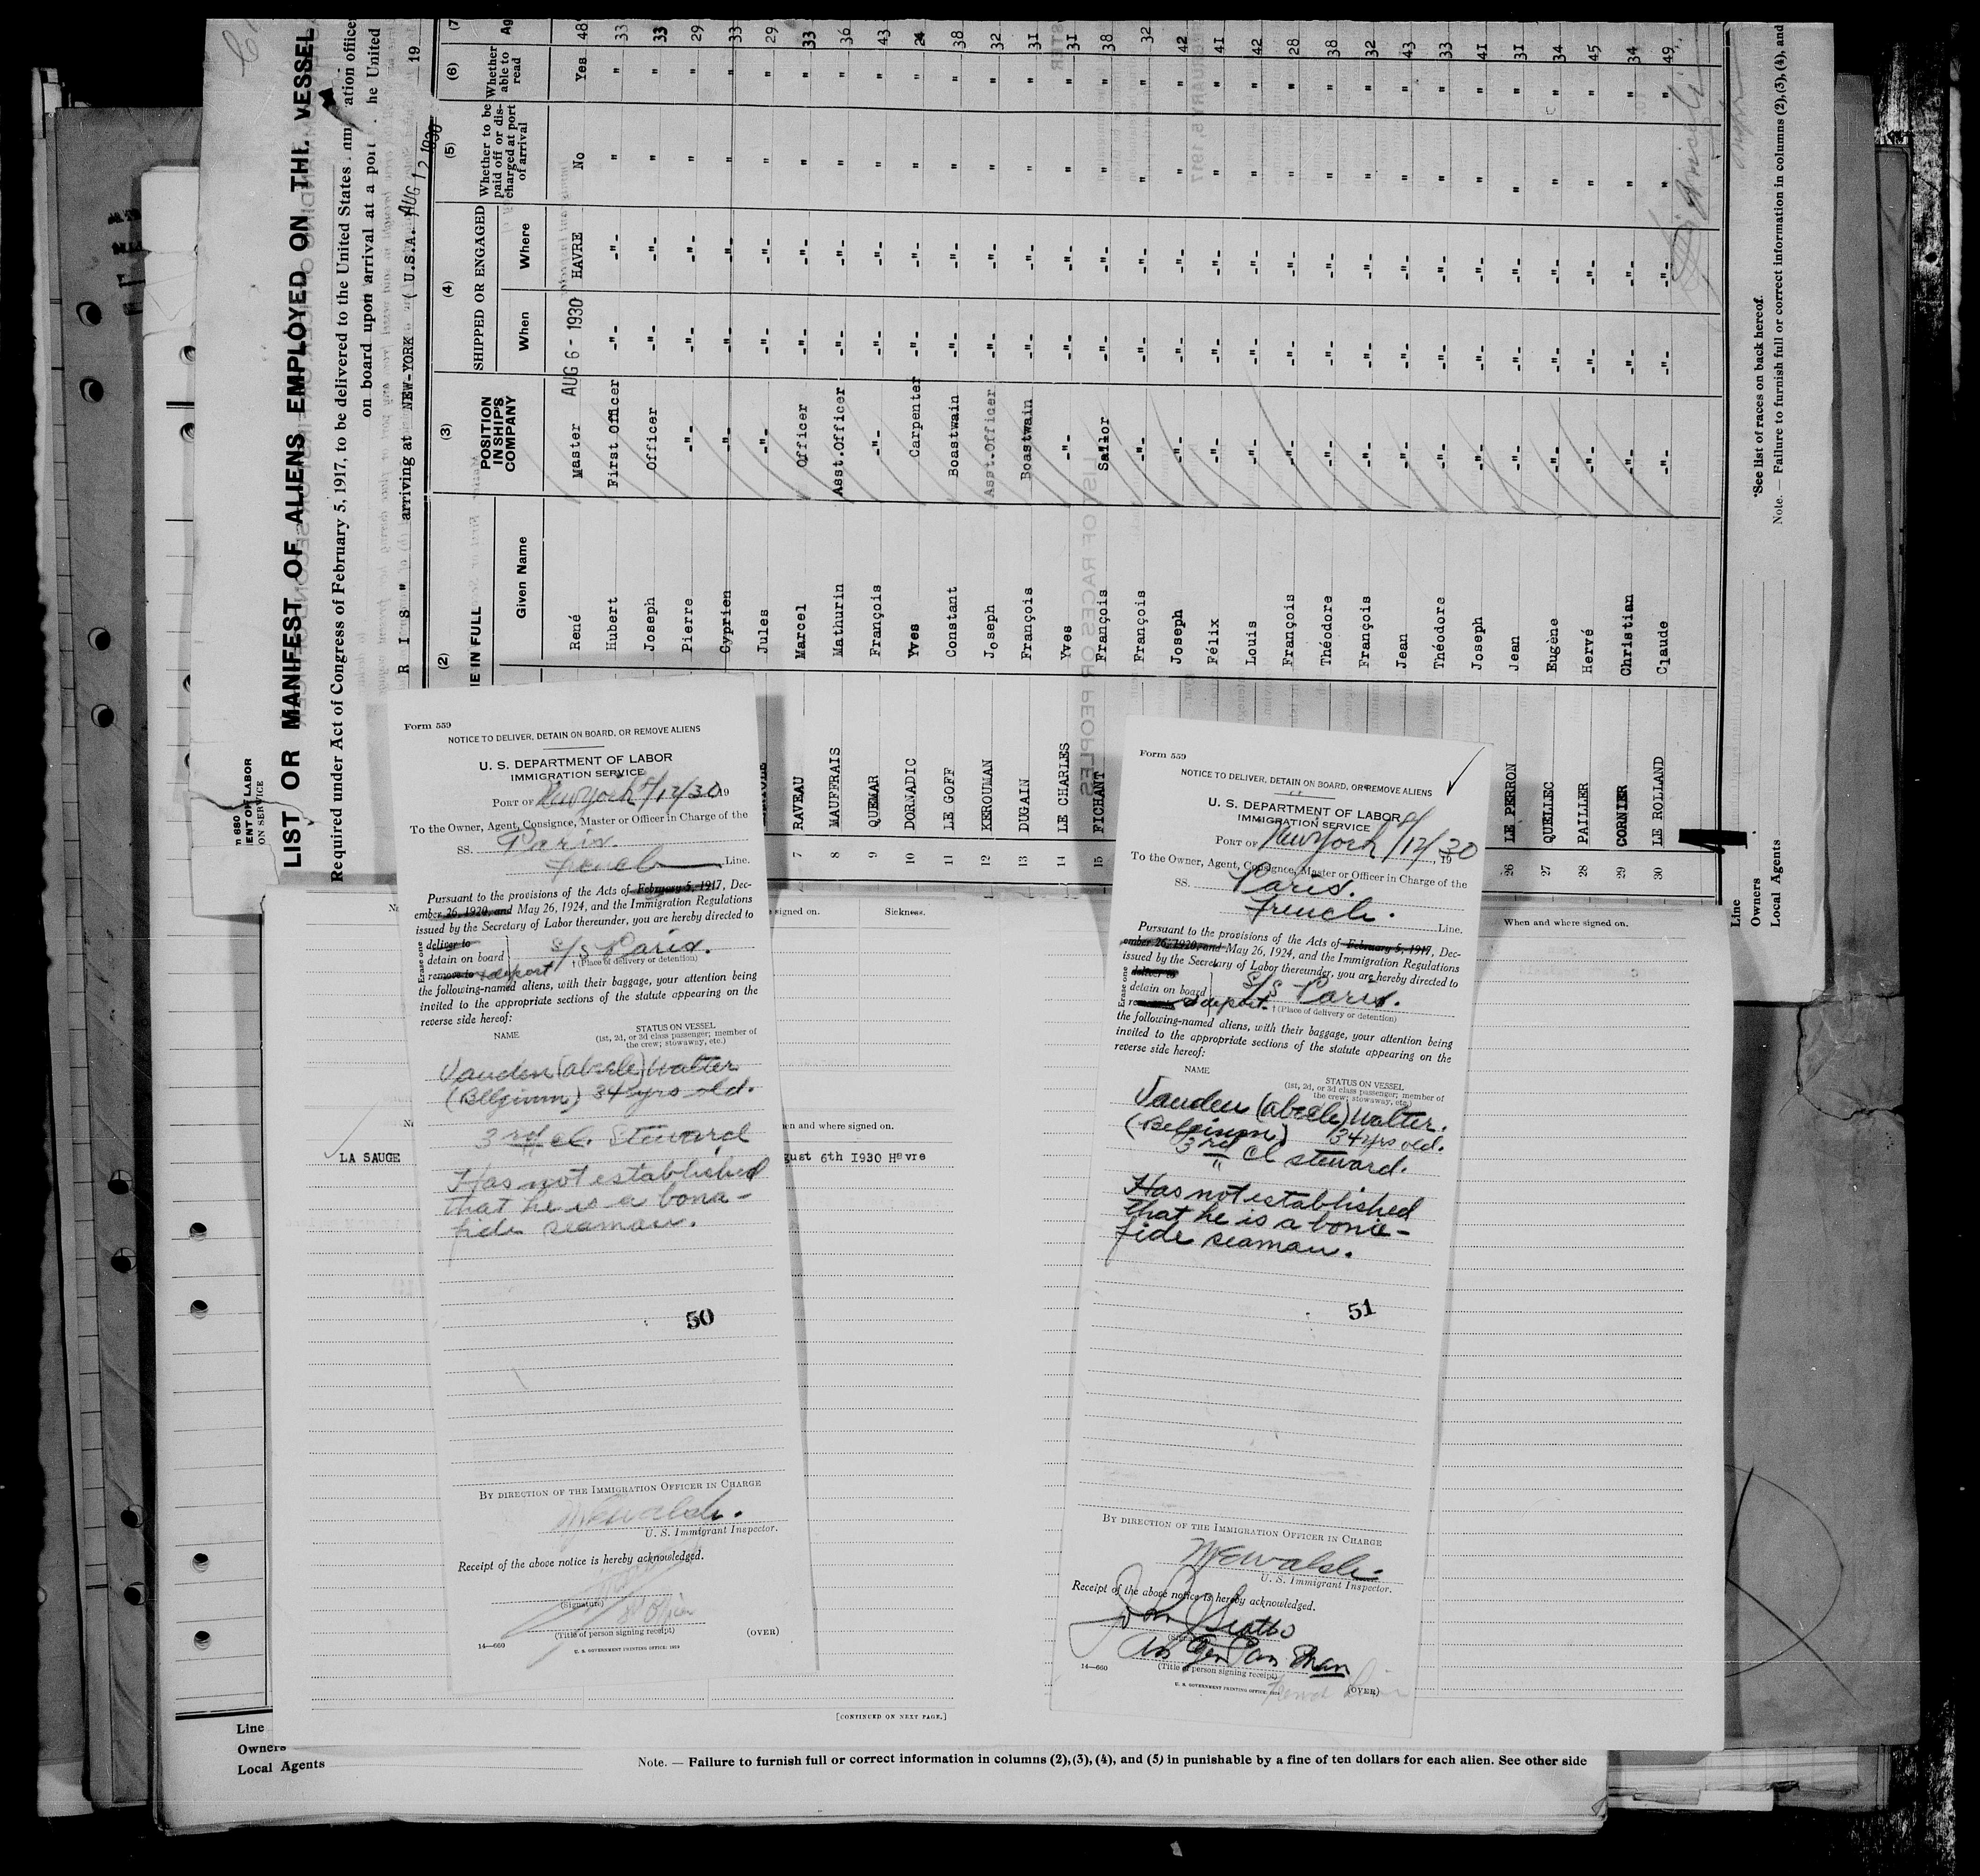 LIST OR MANIFEST OF ALIENS EMPLOYED ON THE VESSEL
Required under Act of Congress of February 5, 1917, to be delivered to the United States
ation office
on board upon arrival at a port
he United
R I S " arriving at NEW-YORK ( U.S.A. AUG 12 1930 19
(2) (3) (4) (5) (6) (7
ME IN FULL
Given Name
POSITION IN SHIP'S COMPANY
SHIPPED OR ENGAGED
When Where
Whether to be paid off or discharged at port of arrival
Whether able to read
Ag
René Master AUG 6 - 1930 HAVRE No Yes 48
Hubert First Officer -"- -"- " " 33
Joseph Officer -"- -"- " " 33
Pierre -"- -"- -"- " " 29
Cyprien -"- -"- -"- " " 33
Jules -"- -"- -"- " " 29
7 RAVEAU Marcel Officer -"- -"- " " 33
8 MAUFFRAIS Mathurin Asst.Officer -"- -"- " " 36
9 QUEMAR François -"- -"- -"- " " 43
10 DORNADIC Yves Carpenter -"- -"- " " 24
11 LE GOFF Constant Boastwain -"- -"- " " 38
12 KEROUMAN Joseph Asst.Officer -"- -"- " " 32
13 DUGAIN François Boastwain -"- -"- " " 31
14 LE CHARLES Yves -"- -"- -"- " " 31
15 FICHANT François Sailor -"- -"- " " 38
François -"- -"- -"- " " 32
Joseph -"- -"- -"- " " 42
Félix -"- -"- -"- " " 41
Louis -"- -"- -"- " " 42
François -"- -"- -"- " " 28
Théodore -"- -"- -"- " " 38
François -"- -"- -"- " " 32
Jean -"- -"- -"- " " 43
Théodore -"- -"- -"- " " 33
Joseph -"- -"- -"- " " 41
26 LE PERRON Jean -"- -"- -"- " " 31
27 QUELLEC Eugène -"- -"- -"- " " 34
28 PAILLER Hervé -"- -"- -"- " " 45
29 CORNIER Christian -"- -"- -"- " " 34
30 LE ROLLAND Claude -"- -"- -"- " " 49
Line
Owners
Local Agents
*See list of races on back hereof.
Note. — Failure to furnish full or correct information in columns (2),(3),(4), and
680
ENT OF LABOR
ON SERVICE
LIST OF RACES OR PEOPLES
Form 559
NOTICE TO DELIVER, DETAIN ON BOARD, OR REMOVE ALIENS
U. S. DEPARTMENT OF LABOR
IMMIGRATION SERVICE
PORT OF New York 8/12/30 19
To the Owner, Agent, Consignee, Master or Officer in Charge of the
SS. Paris.
French Line.
Pursuant to the provisions of the Acts of February 5, 1917, Dec-
ember 26, 1920, and May 26, 1924, and the Immigration Regulations
issued by the Secretary of Labor thereunder, you are hereby directed to
Erase one
deliver to
detain on board S/S Paris.
remove to & deport † (Place of delivery or detention)
the following-named aliens, with their baggage, your attention being
invited to the appropriate sections of the statute appearing on the
reverse side hereof:
NAME STATUS ON VESSEL
(1st, 2d, or 3d class passenger; member of
the crew; stowaway, etc.)
Vanden (abeele) Walter
(Belgium) 34 yrs old.
3rd cl. Steward
Has not established
that he is a bona-
fide seaman.
50
BY DIRECTION OF THE IMMIGRATION OFFICER IN CHARGE
U. S. Immigrant Inspector.
Receipt of the above notice is hereby acknowledged.
(Signature)
(Title of person signing receipt)
14—660 (OVER)
U. S. GOVERNMENT PRINTING OFFICE: 1929
Form 559
NOTICE TO DELIVER, DETAIN ON BOARD, OR REMOVE ALIENS
U. S. DEPARTMENT OF LABOR
IMMIGRATION SERVICE
PORT OF New York 8/12/30 19
To the Owner, Agent, Consignee, Master or Officer in Charge of the
SS. Paris.
French. Line.
Pursuant to the provisions of the Acts of February 5, 1917, Dec-
ember 26, 1920, and May 26, 1924, and the Immigration Regulations
issued by the Secretary of Labor thereunder, you are hereby directed to
Erase one
deliver to
detain on board S/S Paris.
& deport. † (Place of delivery or detention)
the following-named aliens, with their baggage, your attention being
invited to the appropriate sections of the statute appearing on the
reverse side hereof:
NAME STATUS ON VESSEL
(1st, 2d, or 3d class passenger; member of
the crew; stowaway, etc.)
Vanden (abeele) Walter.
(Belgium) 34 yrs old.
3rd cl steward.
Has not established
that he is a bona-
fide seaman.
51
BY DIRECTION OF THE IMMIGRATION OFFICER IN CHARGE
U. S. Immigrant Inspector.
Receipt of the above notice is hereby acknowledged.
(Title of person signing receipt)
14—660 (OVER)
U. S. GOVERNMENT PRINTING OFFICE: 1929
signed on. Sickness.
When and where signed on.
en and where signed on.
LA SAUGE
gust 6th 1930 Havre
[CONTINUED ON NEXT PAGE.]
Line
Owners
Local Agents
Note. — Failure to furnish full or correct information in columns (2),(3),(4), and (5) in punishable by a fine of ten dollars for each alien. See other side